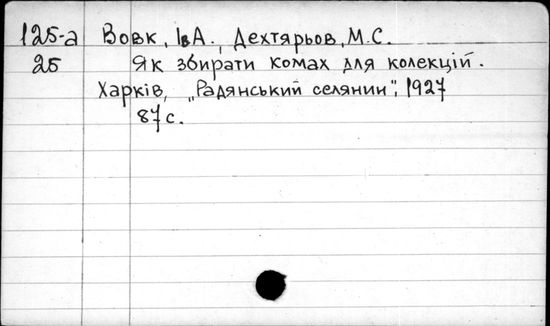 125-а Вовк, І.А., Дехтярьов, М.С.
25 Як збирати комах для колекцій.
Харків, „Радянський селянин", 1927
87 с.